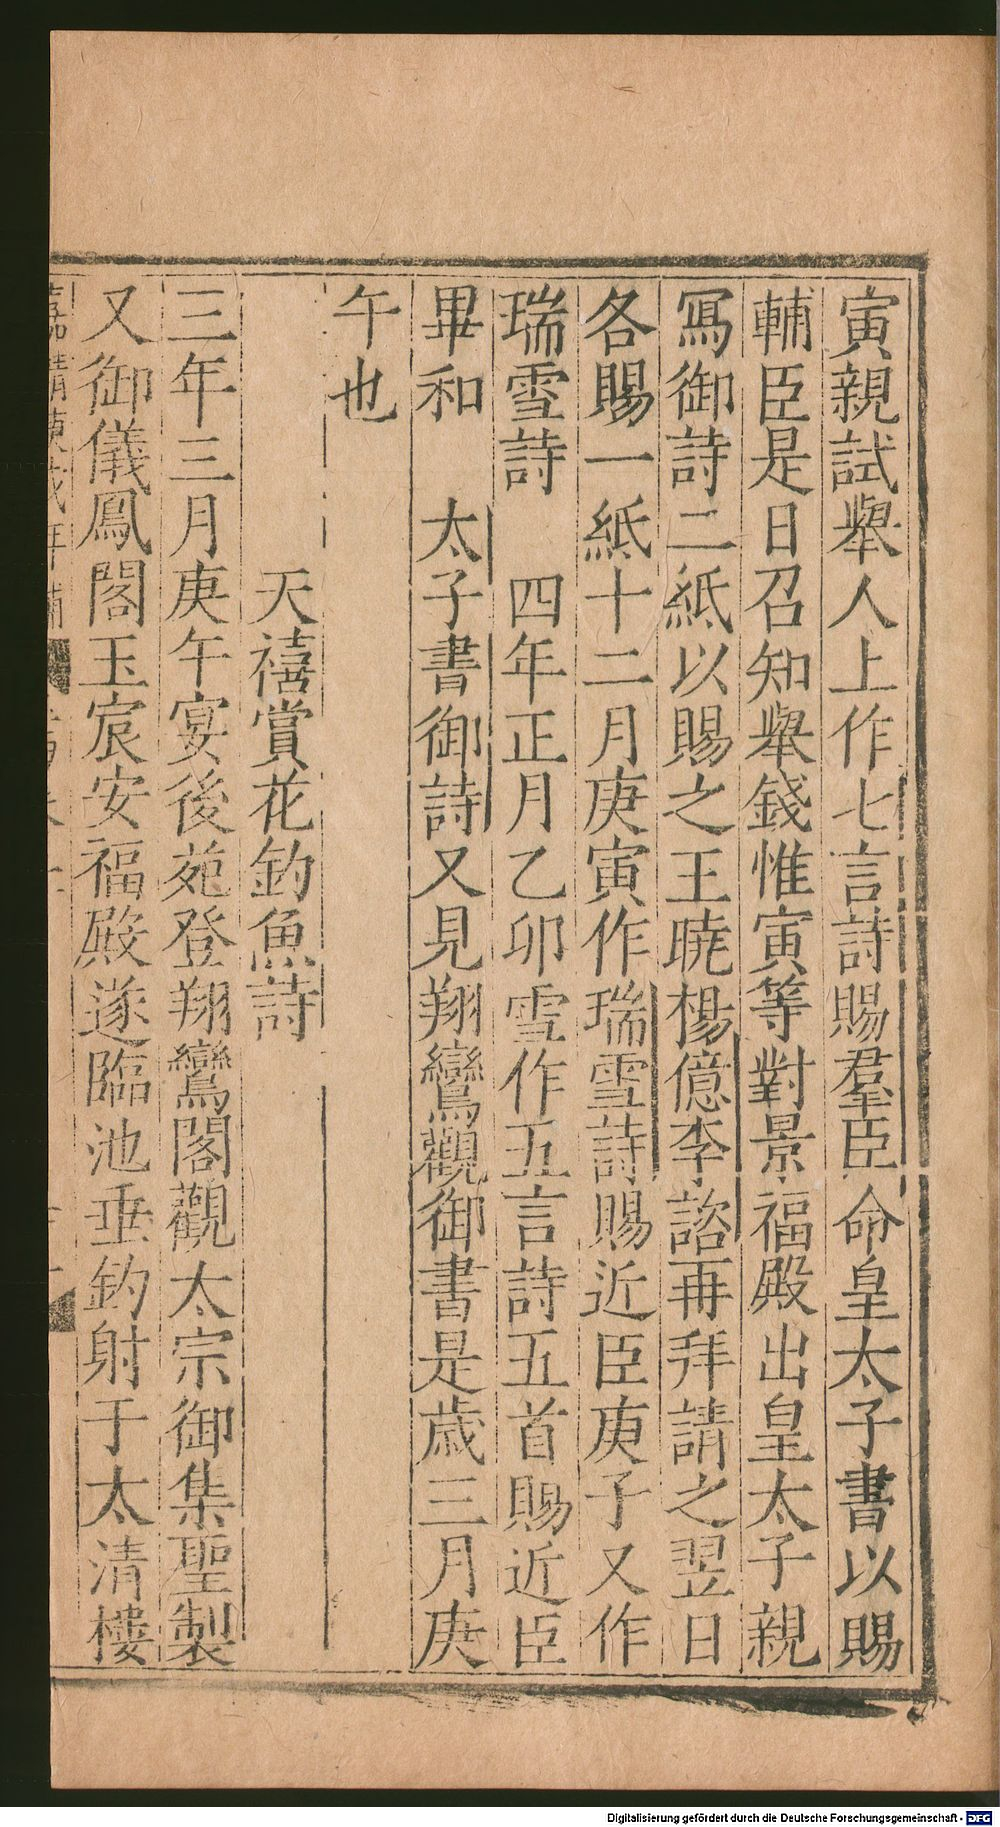 寅親試舉人上作七言詩賜羣臣命皇太子書以賜
輔臣是日召知舉錢惟寅等對景福殿出皇太子親
寫御詩二紙以賜之王曉楊億李諮再拜請之翌日
各賜一紙十二月庚寅作瑞雪詩賜近臣庚子又作
瑞雪詩　四年正月乙卯雪作五言詩五首賜近臣
畢和　太子書御詩又見翔鸞觀御書是歲三月庚
午也
天禧賞花釣魚詩
三年三月庚午宴後苑登翔鸞閣觀太宗御集聖製
又御儀鳳閣玉宸安福殿遂臨池垂釣射于太清樓
Digitalisierung gefördert durch die Deutsche Forschungsgemeinschaft - DFG